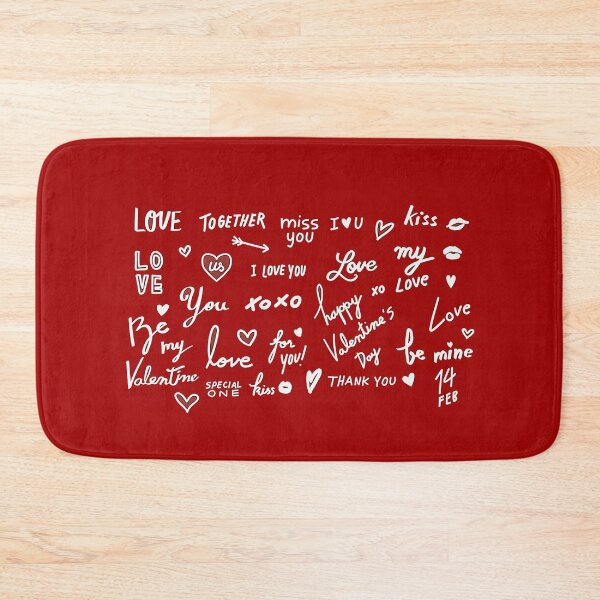 LOVE
TOGETHER
miss
you
I♥U
kiss
LO
VE
us
I LOVE YOU
Love
my
You
xoxo
happy
Valentine's
Day
xo
LOVE
Love
Be
my
Valentine
love
for
you!
be mine
SPECIAL
ONE
kiss
THANK YOU
14
FEB